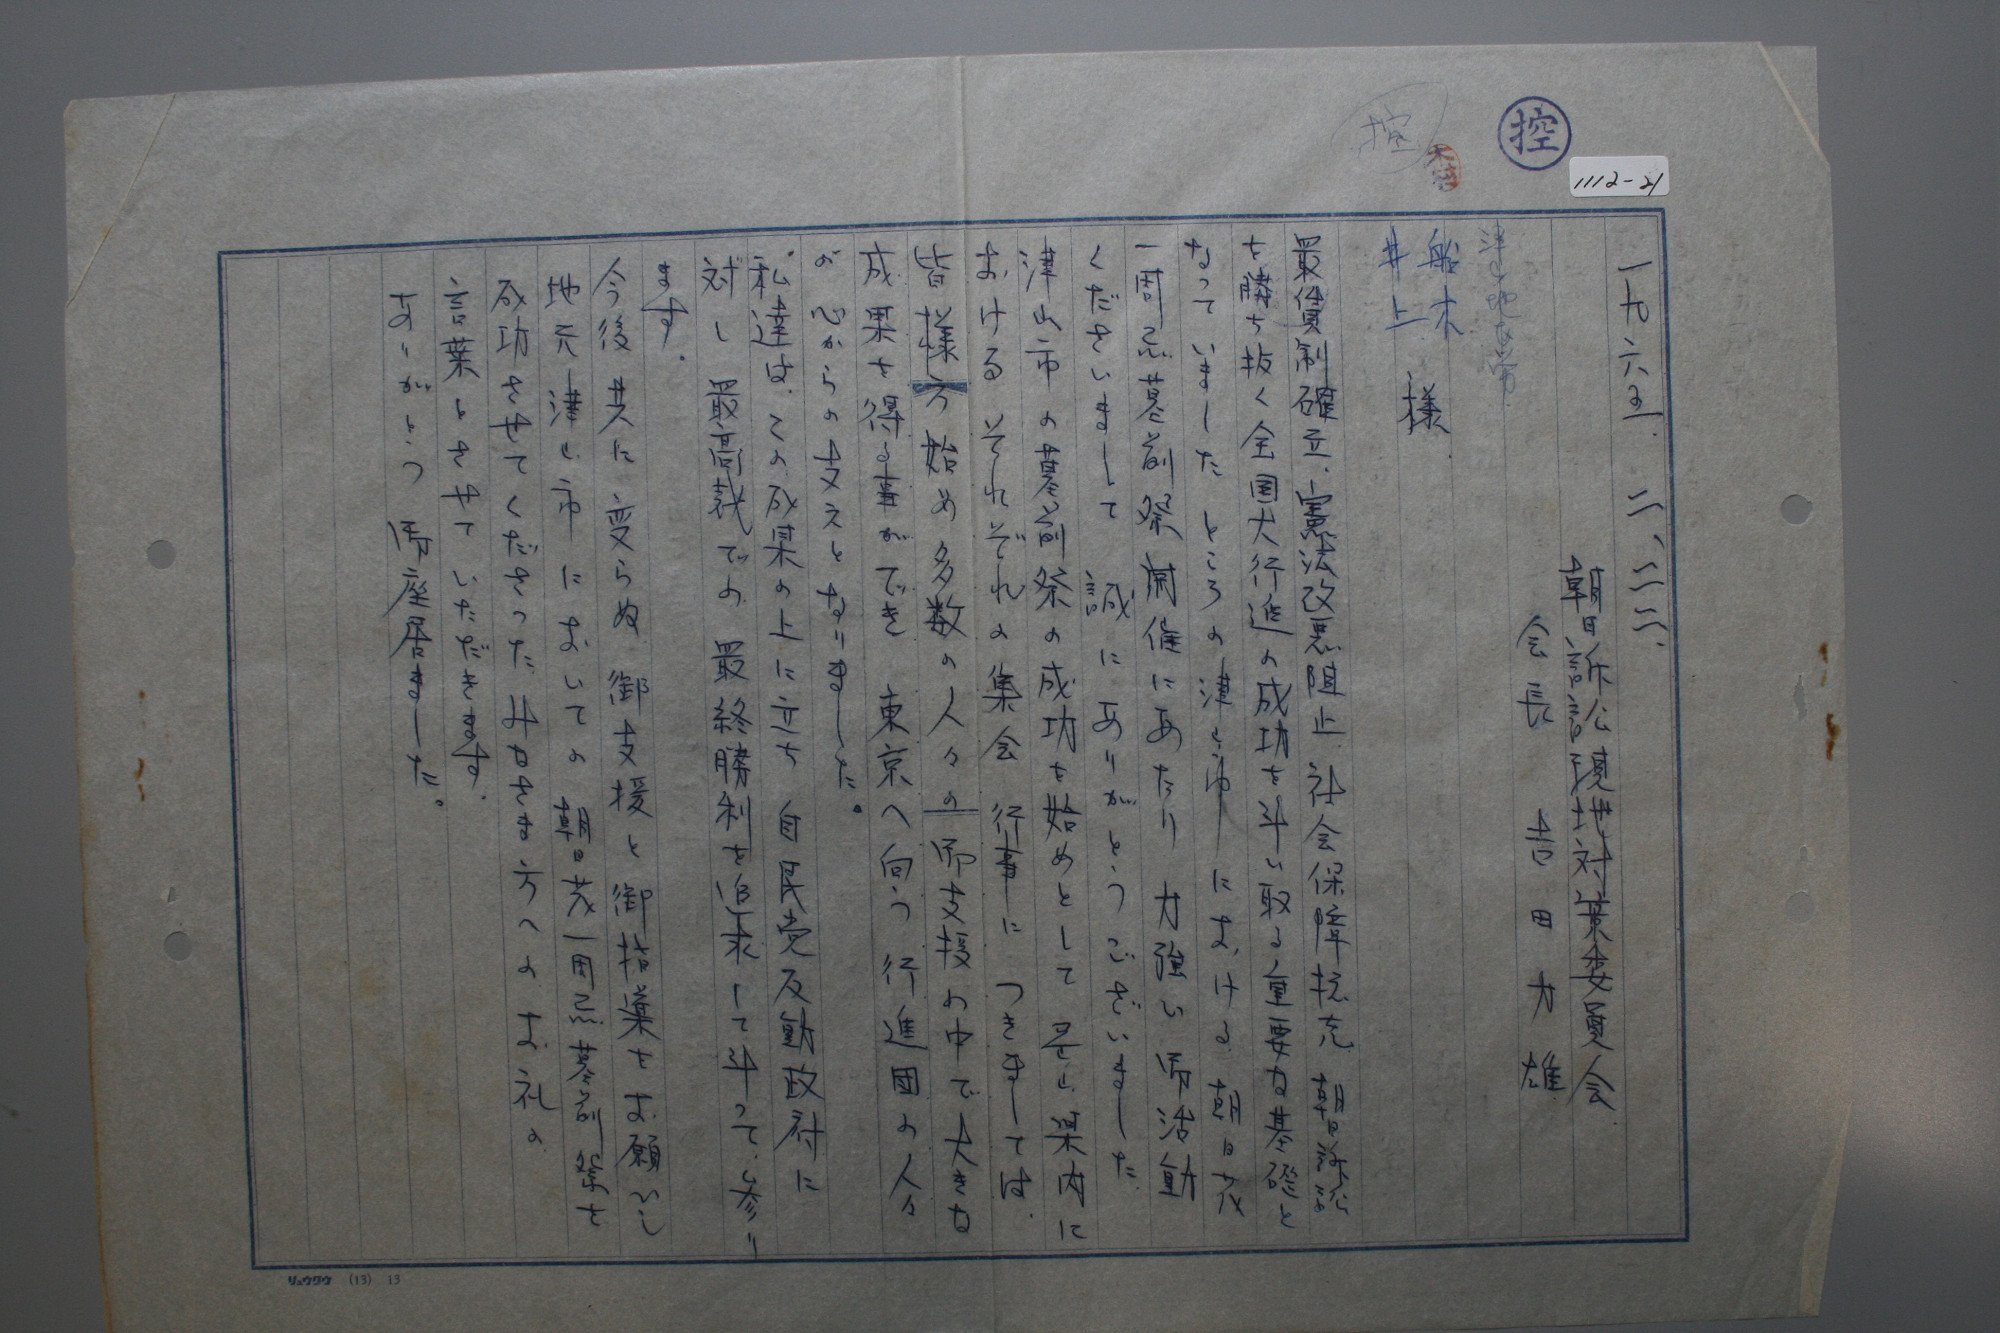 控
控
1112-21
一九六五.二、二三、
朝日訴訟現地対策委員会
会長 吉田力雄
船木
井上 様
最賃制確立、憲法改悪阻止、社会保障拡充、朝日訴訟
を勝ち抜く全国大行進の成功を斗い取る重要な基礎と
なっていましたところの津山市における、朝日茂
一周忌墓前祭開催にあたり 力強い 御活動
くださいまして 誠にありがとうございました
津山市の墓前祭の成功を始めとして 岡山県内に
おけるそれぞれの集会 行事に つきましては、
皆様方始め多数の人々の 御支援の中で大きな
成果を得る事ができ 東京へ向う行進団の人々
の心からの支えとなりました。
私達は、この成果の上に立ち 自民党反動政府に
対し 最高裁での、最終勝利を追求して斗って、参り
ます.
今後共に変らぬ、御支援と御指導をお願いし
地元津山市においての朝日茂一周忌墓前祭を
成功させてくださった、みなさま方へのお礼の
言葉とさせていただきます.
ありがとう 御座居ました。
リュウグウ (13) 13